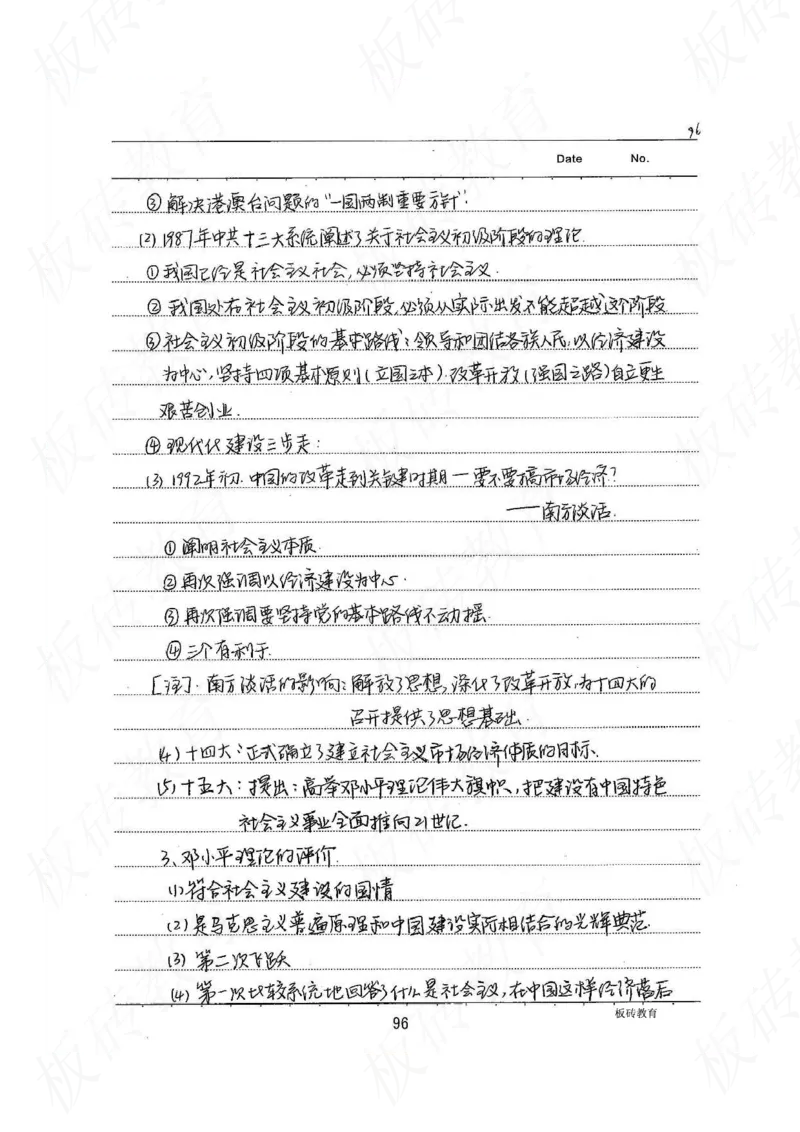 96
Date No.
③解决港澳台问题的"一国两制重要方针".
(2)1987年中共十三大系统阐述了关于社会主义初级阶段的理论.
①我国已经是社会主义社会,必须坚持社会主义.
②我国处在社会主义初级阶段,必须从实际出发不能超越这个阶段
③社会主义初级阶段的基本路线:领导和团结各族人民,以经济建设
为中心,坚持四项基本原则(立国之本).改革开放(强国之路)自立更生
艰苦创业.
④现代化建设三步走:
(3)1992年初.中国的改革走到关键时期—要不要搞市场经济?
——南方谈话.
①阐明社会主义本质.
②再次强调以经济建设为中心.
③再次强调要坚持党的基本路线不动摇.
④三个有利于.
[注].南方谈话的影响:解放了思想,深化了改革开放,为十四大的
召开提供了思想基础.
(4)十四大:正式确立了建立社会主义市场经济体质的目标、
(5)十五大:提出:高举邓小平理论伟大旗帜,把建设有中国特色
社会主义事业全面推向21世纪.
3、邓小平理论的评价.
(1)符合社会主义建设的国情
(2)是马克思主义普遍原理和中国建设实际相结合的光辉典范.
(3)第二次飞跃
(4)第一次比较系统地回答了什么是社会主义,在中国这样经济落后
板砖教育
96
板砖教育